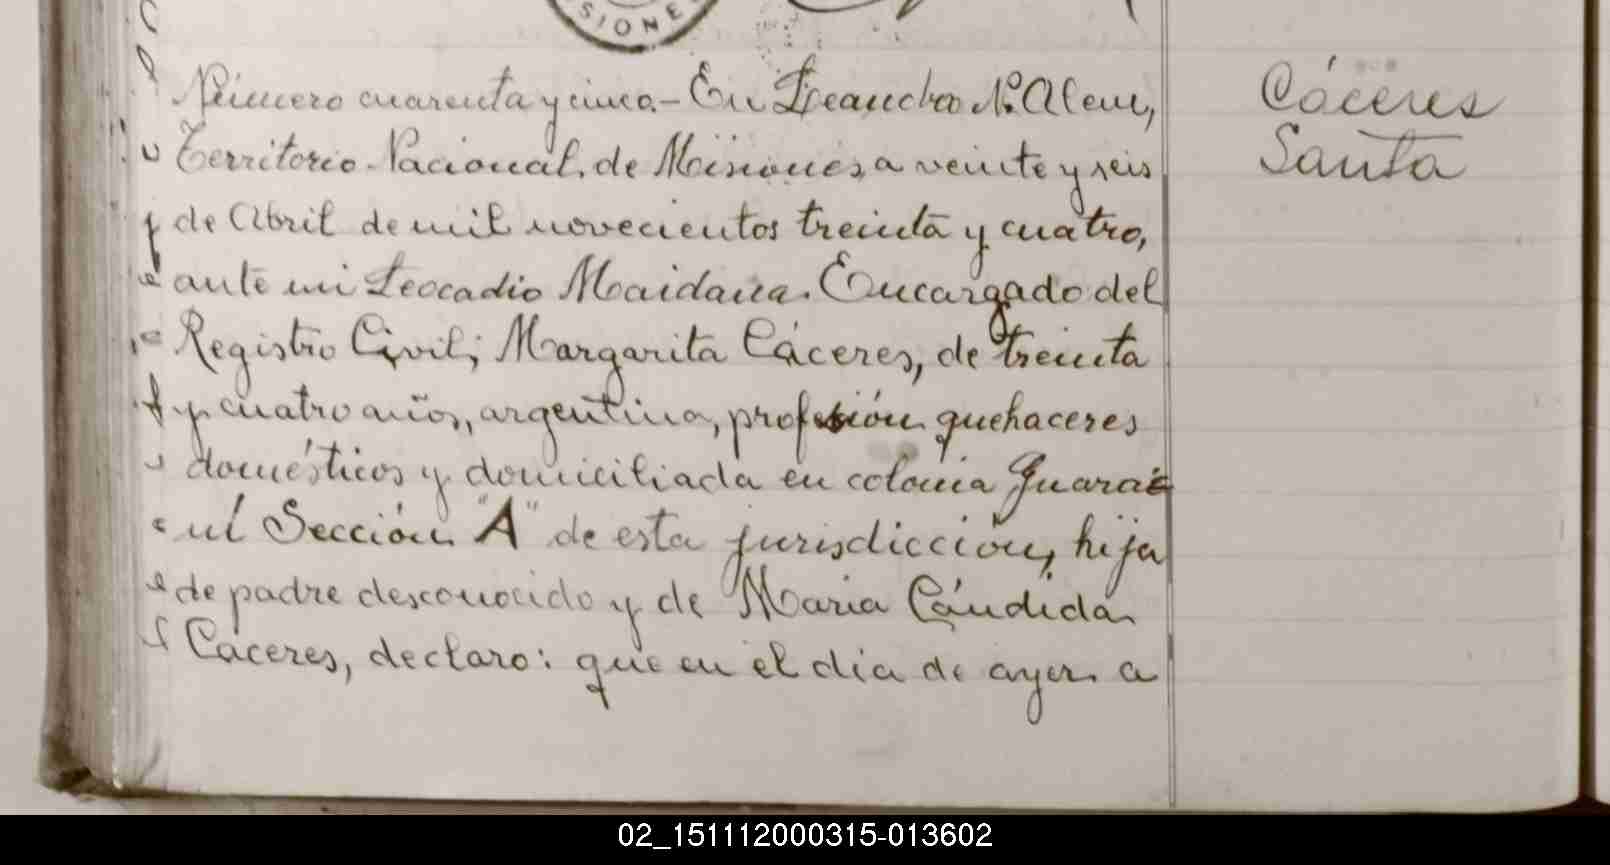 SIONE
Número cuarenta y cinco.- En Leandro N. Alem,
Cáceres
Santa
Territorio Nacional de Misiones, a veinte y seis
de Abril de mil novecientos treinta y cuatro,
ante mi Leocadio Maidana. Encargado del
Registro Civil; Margarita Cáceres, de treinta
y cuatro años, argentina, profesión quehaceres
domésticos y domiciliada en colonia
Sección "A" de esta jurisdicción, hija
de padre desconocido y de Maria Cándida
Cáceres, declaro: que en el día de ayer a
02_151112000315-013602